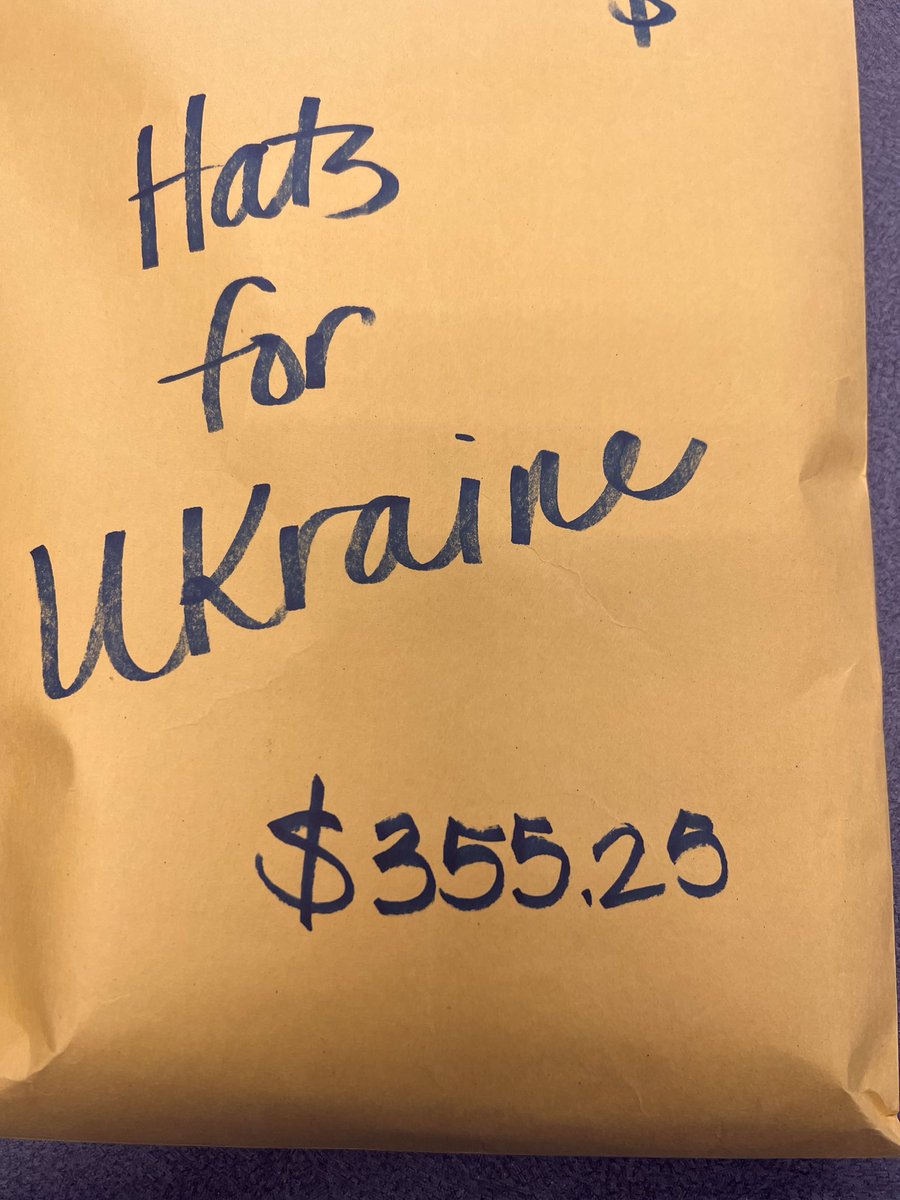 $
Hats
for
Ukraine
$355.25